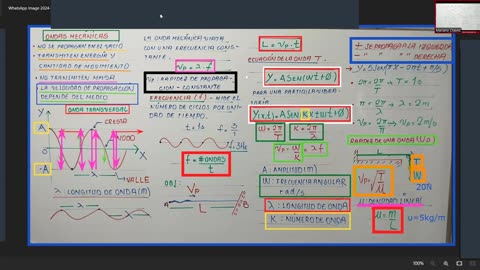 WhatsApp Image 2024
ONDAS MECÁNICAS
- NO SE PROPAGAN EN EL VACÍO
- TRANSMITEN ENERGÍA Y
CANTIDAD DE MOVIMIENTO
- NO TRANSMITEN MASA
- LA VELOCIDAD DE PROPAGACIÓN
DEPENDE DEL MEDIO
ONDA TRANSVERSAL
A
-A
Y
X
CRESTA
NODO
VALLE
λ
λ : LONGITUD DE ONDA (m)
λ
LA ONDA MECÁNICA VIAJA
CON UNA FRECUENCIA CONS-
TANTE.
Vp = λ·f
Vp: RAPIDEZ DE PROPAGA-
CIÓN - CONSTANTE
FRECUENCIA (f) - MIDE EL
NÚMERO DE CICLOS POR UNI-
DAD DE TIEMPO.
f = # ONDAS
t
OBJ:
Vp
A
B
L
L = Vp·t
ECUACIÓN DE LA ONDA T.
Y = A SEN(wt+Ø)
PARA UNA PARTÍCULA VIBRA-
TORIA
Y(x,t) = A SEN(Kx ± wt+Ø)
W = 2π
T
K = 2π
λ
Vp = W = λf
K
A: AMPLITUD (m)
W: FRECUENCIA ANGULAR
rad/s
λ : LONGITUD DE ONDA
K : NÚMERO DE ONDA
± SE PROPAGA A LA IZQUIERDA
DERECHA
RAPIDEZ DE UNA ONDA (Vp)
L
T
W
20N
Vp = √T
μ
μ: DENSIDAD LINEAL
μ = m
L
u=5kg/m
100%